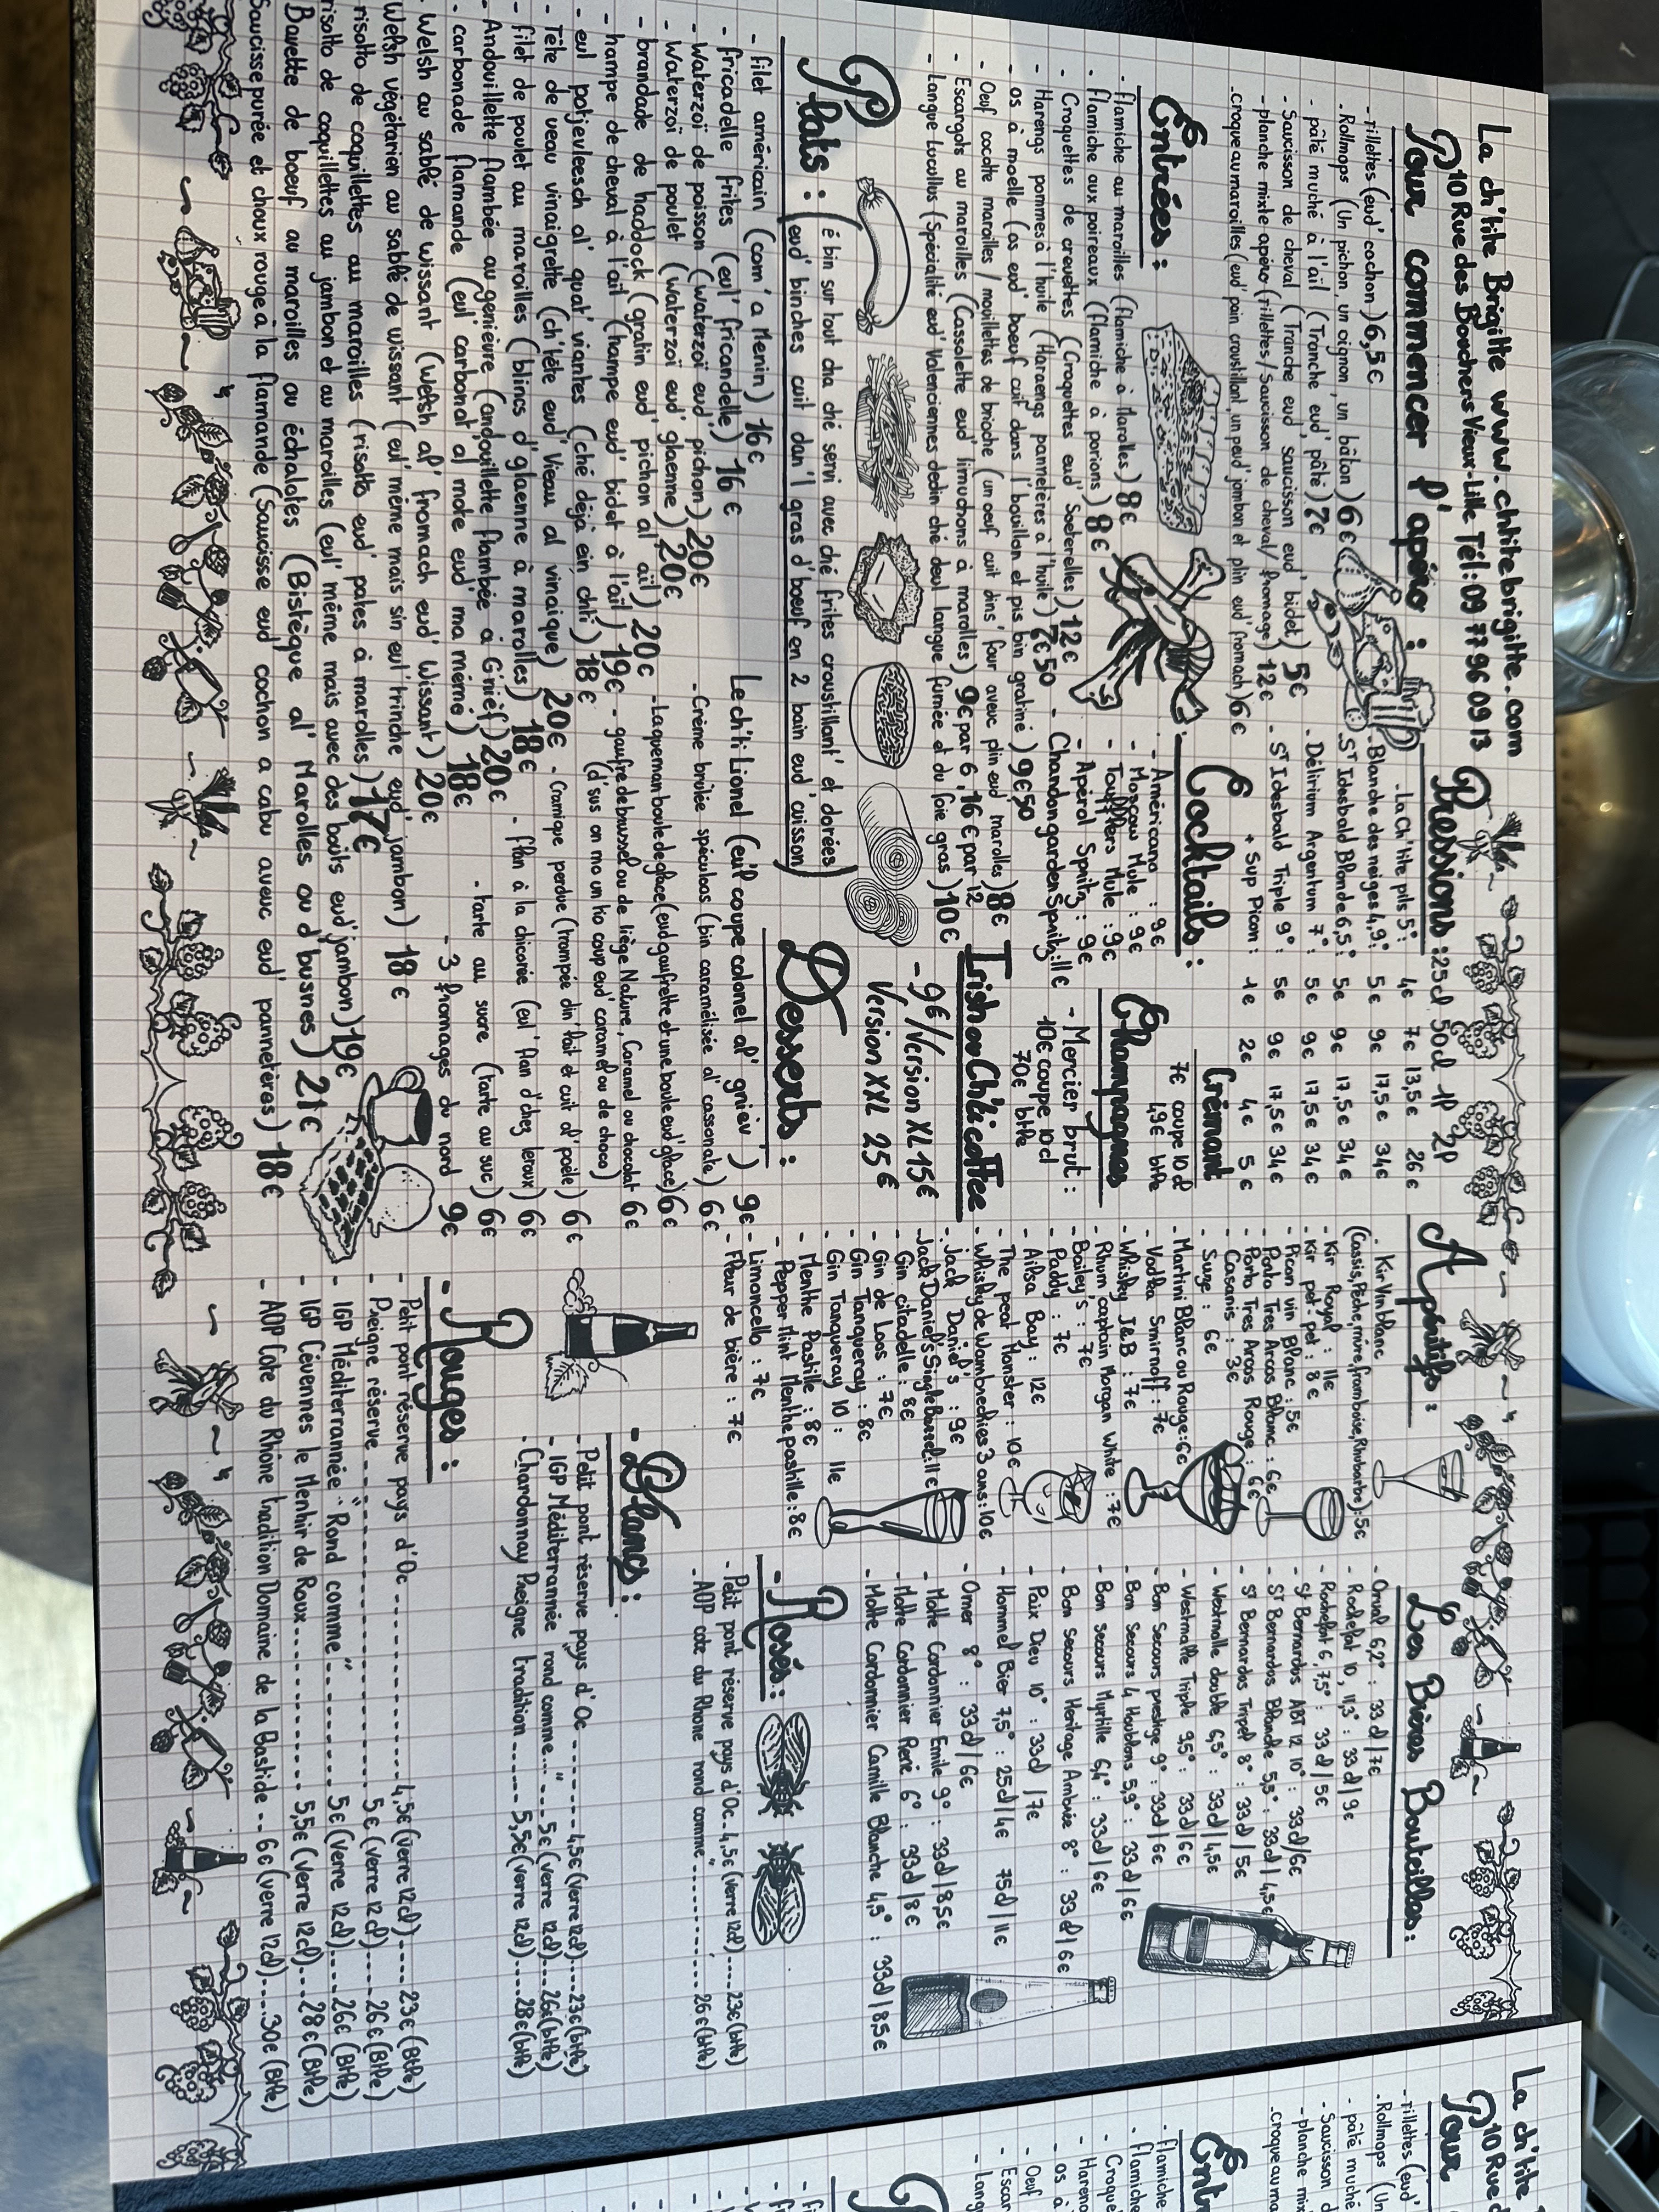 La ch'tite Brigitte www.chtitebrigitte.com
10 Rue des Bouchers Vieux-Lille Tél: 09 77 96 09 13
Pour commencer l'apéro :
- rillettes (eud' cochon) 6,5€
- Rollmops (Un pichon, un oignon, un bâton) 6€
- pâté muché à l'ail (Tranche eud' pâté) 7€
- Saucisson de cheval (Tranche eud' saucisson eud' bidet) 5€
- planche mixte apéro (rillettes/Saucisson de cheval/fromage) 12€
- croque au maroilles (eud' pain croustillant, un peud' jambon et plin eud' fromach) 6€
Entrées :
- flamiche au maroilles (flamiche à Marolles) 8€
- flamiche aux poireaux (flamiche à porions) 8€
- Croquettes de crevettes (Croquettes eud' Sueterelles) 12€
- Harengs pommes à l'huile (Haraengs pannetères à l'huile) 7€50
- os à moelle (os eud' boeuf cuit dans l'bouillon et pis bin gratiné) 9€50
- Oeuf cocotte maroilles / mouillettes de brioche (un oeuf cuit dins' four aveuc plin eud' marolles) 8€
- Escargots au maroilles (Cassolette eud' limuchons à marolles) 9€ par 6, 16€ par 12
- Langue Lucullus (Spécialité eud' Valenciennes dedin ché deul langue fumée et du foie gras) 10€
Plats : (é bin sur tout cha ché servi avec ché frites croustillant' et dorées)
(eud' binches cuit dan'l gras d'boeuf en 2 bain eud' cuisson)
- filet américain (com' a Menin) 16€
- fricadelle frites (eul' fricandelle) 16€
- Waterzoï de poisson (waterzoï eud' pichon) 20€
- Waterzoï de poulet (waterzoï eud' glaenne) 20€
- brandade de haddock (gratin eud' pichon al ail) 20€
- hampe de cheval à l'ail (hampe eud' bidet à l'ail) 19€
- eul potjevleesch al' quat' viantes (ché déjà ein chti) 18€
- Tête de veau vinaigrette (ch'tête eud' Vieau al vinaique) 20€
- filet de poulet au maroilles (blincs d'glaenne à marolles) 18€
- Andouillette flambée au genièvre (andouillette flambée à G'nief) 20€
- carbonade flamande (eul' carbonat' al mote eud' ma mémé) 18€
- Welsh au sablé de wissant (Welsh al' fromach eud' Wissant) 20€
Welsh végétarien au sablé de wissant (eul' même mais sin eul' trinche eud' jambon) 18€
risotto de coquillettes au maroilles (risotto eud' pates à marolles) 17€
risotto de coquillettes au jambon et au maroilles (eul' même mais avec des bouts eud' jambon) 19€
Bavette de boeuf au maroilles ou échalotes (Bistèque al' Marolles ou d'busnes) 21€
Saucisse purée et choux rouge à la flamande (Saucisse eud' cochon a cabu aveuc eud' pannetères) 18€
Pressions : 25cl 50cl 1P 2P
- La Ch'tite pils 5°: 4€ 7€ 13,5€ 26€
- Blanche des neiges 4,9°: 5€ 9€ 17,5€ 34€
- St Idesbald Blonde 6,5°: 5€ 9€ 17,5€ 34€
- Délirium Argentum 7°: 5€ 9€ 17,5€ 34€
- St Idesbald Triple 9°: 5€ 9€ 17,5€ 34€
+ Sup Picon : 1€ 2€ 4€ 5€
Cocktails :
- Américano : 9€
- Moscow Mule : 9€
- Taufflers Mule : 9€
- Apérol Spritz : 9€
- Chandon garden Spritz : 11€
Crémant
7€ coupe 10cl
49€ btlle
Champagnes
- Mercier brut :
10€ coupe 10cl
70€ btlle
Irish ou Ch'ti coffee
- 9€/Version XL 15€
Version XXL 25€
Desserts :
Le ch'ti Lionel (eu'l coupe colonel al' gniev) 9€
- Crème brulée spéculoos (bin caramélisée al' cassonate) 6€
- Laqueman boule de glace (eud gaufrette et une boule eud' glace) 6€
- gaufre de brussel ou de liège Nature, Caramel ou chocolat 6€
(d'sus on mo un ho coup eud' caramel ou de choco)
- Cramique perdue (trempée din' lait et cuit al' paële) 6€
- flan à la chicorée (eul' flan d'chez leroux) 6€
- tarte au sucre (tarte au suc) 6€
- 3 fromages du nord 9€
Apéritifs :
- Kir Vin blanc
(Cassis, Pêche, mûre, framboise, Rhubarbe) : 5€
- Kir Royal : 11€
- Kir pet. pet : 8€
- Picon vin Blanc : 5€
- Porto Tres Arcos Blanc : 6€
- Porto Tres Arcos Rouge : 6€
- Casanis : 3€
- Suze : 6€
- Martini Blanc ou Rouge : 6€
- Vodka Smirnoff : 7€
- Whisky J&B : 7€
- Rhum captain Morgan White : 7€
- Bailey's : 7€
- Paddy : 7€
- Ailsa Bay : 12€
- The peat Monster : 10€
- Whisky de Wambrechies 3 ans : 10€
- Jack Daniel's : 9€
- Jack Daniel's Single Barrel : 11€
- Gin citadelle : 8€
- Gin de Loos : 7€
- Gin Tanqueray : 8€
- Gin Tanqueray 10 : 11€
- Menthe Pastille : 8€
- Peppermint Menthe pastille : 8€
- Limoncello : 7€
- Fleur de bière : 7€
Les Bières Bouteilles :
- Orval 6,2° : 33cl/7€
- Rochefort 10, 11,3° : 33cl/9€
- Rochefort 6, 7,5° : 33cl/5€
- St Bernardus ABT 12 10° : 33cl/6€
- St Bernardus Blanche 5,5° : 33cl/4,5€
- St Bernardus Tripel 8° : 33cl/5€
- Westmalle double 6,5° : 33cl/4,5€
- Westmalle Triple 9,5° : 33cl/6€
- Bon Secours prestige 9° : 33cl/6€
- Bon Secours 4 Houblons 5,9° : 33cl/6€
- Bon Secours Myrtille 6,4° : 33cl/6€
- Bon Secours Héritage Ambrée 8° : 33cl/6€
- Paix Dieu 10° : 33cl/7€
- Hommel Bier 7,5° : 25cl/4€ 75cl/11€
- Omer 8° : 33cl/6€
- Motte Cordonnier Emile 9° : 33cl/8,5€
- Motte Cordonnier René 6° : 33cl/8€
- Motte Cordonnier Camille Blanche 4,5° : 33cl/8,5€
- Rosés :
- Petit pont réserve pays d'Oc - 4,5€ (verre 12cl) ---- 23€ (btlle)
- AOP cote du Rhone rond comme " ---------- 26€ (btlle)
- Blancs :
- Petit pont réserve pays d'Oc ------- 4,5€ (verre 12cl) ---- 23€ (btlle)
- IGP Méditerrannée rond comme " ---- 5€ (verre 12cl) ---- 26€ (btlle)
- Chardonnay Preigne tradition ----- 5,5€ (verre 12cl) ---- 28€ (btlle)
- Rouges :
- Petit pont réserve pays d'Oc ---------------- 4,5€ (verre 12cl) ---- 23€ (Btlle)
- Preigne réserve ---------------- 5€ (verre 12cl) ---- 26€ (Btlle)
- IGP Méditerrannée "Rond comme" ---------- 5€ (verre 12cl) ---- 26€ (Btlle)
- IGP Cévennes le Menhir de Roux ------------ 5,5€ (verre 12cl) --- 28€ (Btlle)
- AOP Cote du Rhône tradition Domaine de la Bastide -- 6€ (verre 12cl) --- 30€ (Btlle)
La ch'tite
10 Rue d
Pour
- rillettes (eud'
- Rollmops (Un
- pâté muché
- Saucisson d
- planche mix
- croque au ma
Entr
- flamiche
- flamiche
- Croque
- Haren
- os à
- Oeuf
- Escar
- Lang